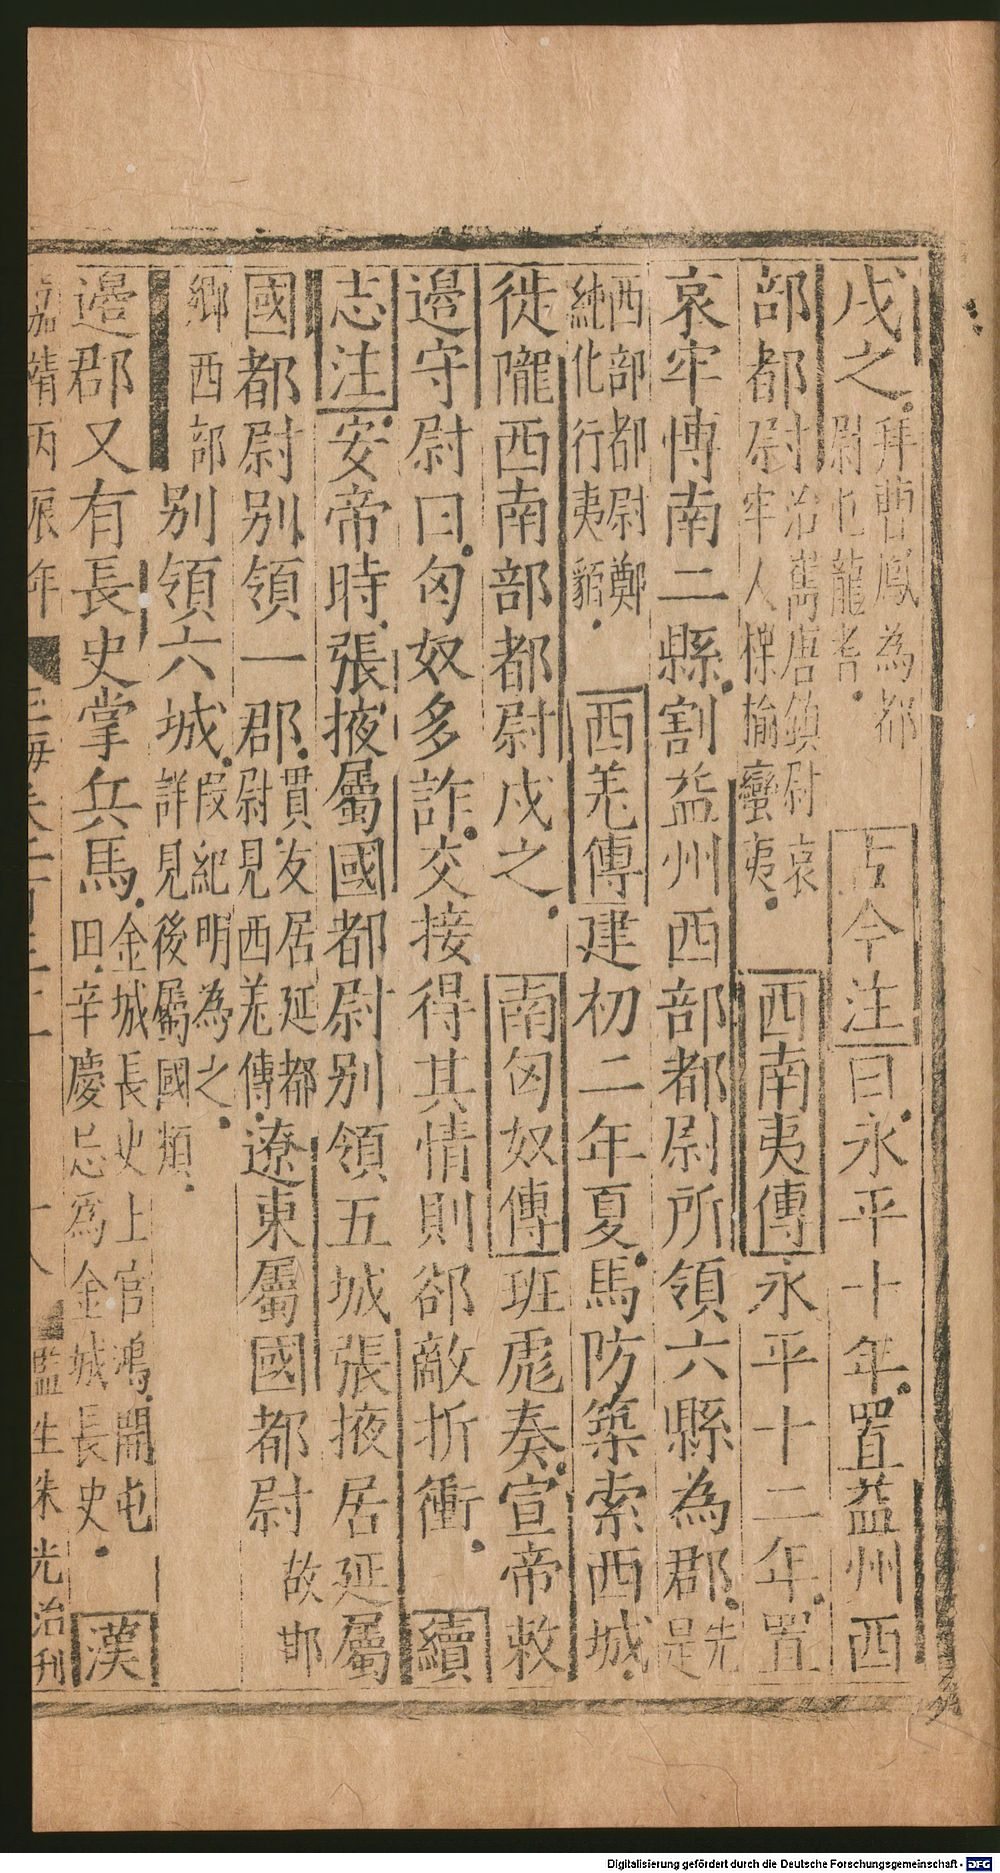 戍之拜曹鳳為都尉屯龍耆古今注曰永平十年置益州西
部都尉治嶲唐鎮尉哀牢人楪榆蠻夷西南夷傳永平十二年置
哀牢博南二縣割益州西部都尉所領六縣為郡先是
西部都尉鄭純化行夷貊西羌傳建初二年夏馬防築索西城
徙隴西南部都尉戍之南匈奴傳班彪奏宣帝敕
邊守尉曰匈奴多詐交接得其情則郤敵折衝續
志注安帝時張掖屬國都尉别領五城張掖居延屬
國都尉别領一郡貫友居延都尉見西羌傳遼東屬國都尉故邯
鄉西部别領六城叚紀明為之詳見後屬國類
邊郡又有長史掌兵馬金城長史上官鴻開屯田辛慶忌為金城長史漢
嘉靖丙辰年
玉海卷一百三十一
十八
監生朱光治刊
Digitalisierung gefördert durch die Deutsche Forschungsgemeinschaft - DFG